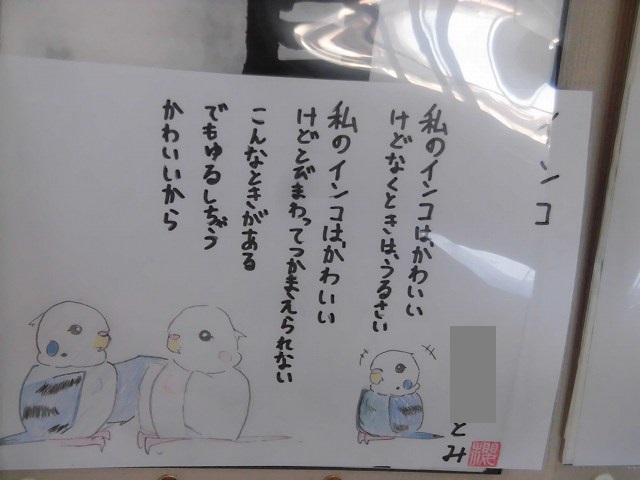 インコ
とみ
私のインコは、かわいい
けどなくときは、うるさい
私のインコは、かわいい
けどとびまわってつかまえられない
こんなときがある
でもゆるしちゃう
かわいいから